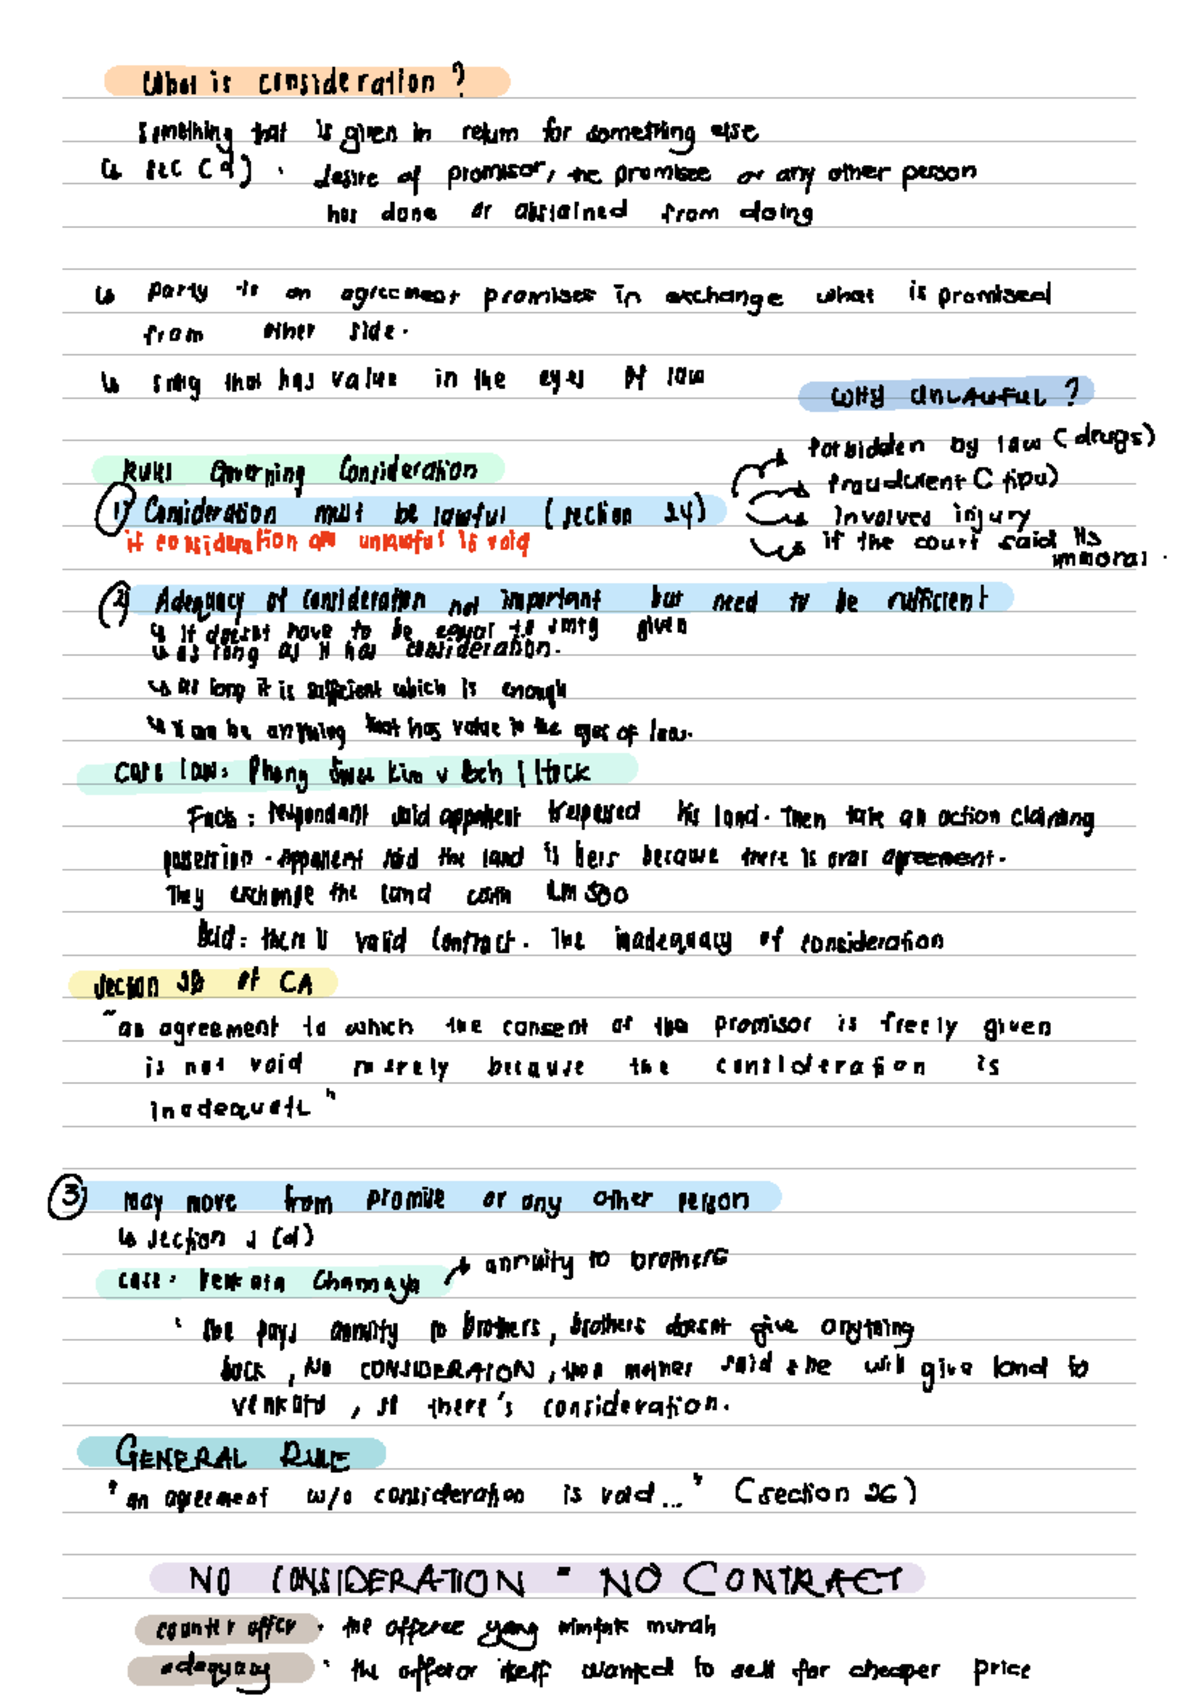 What is consideration ?
Something that is given in return for something else
↳ sec ( d ) : desire of promisor, the promisee or any other person
has done or abstained from doing
↳ party in an agreement promises in exchange what is promised
from other side.
↳ smtg that has value in the eyes of law
WHY UNLAWFUL ?
forbidden by law ( drugs )
fraudulent ( tipu )
involved injury
if the court said its
immoral .
Rules Governing Consideration
1) Consideration must be lawful ( section 24 )
if consideration are unlawful is void
2) Adequacy of consideration not important but need to be sufficient
↳ it doesnt have to be equal to smtg given
↳ as long as it has consideration.
↳ as long it is sufficient which is enough
↳ it can be anything that has value in the eyes of law.
Case law: Phang Swee Kim v Beh I Hock
Facts : respondant said appellent trespassed his land. Then take an action claiming
possession. Appellent said the land is hers because there is oral agreement.
They exchange the land with RM 500
Held : there is valid contract. The inadequacy of consideration
Section 26 of CA
"an agreement to which the consent of the promisor is freely given
is not void merely because the consideration is
inadequate "
3) may move from promise or any other person
↳ section 2 (d)
case: Venkata Chinnaya → annuity to brothers
' she pays annuity to brothers, brothers doesnt give anything
back , NO CONSIDERATION , then mother said she will give land to
venkata , so there's consideration.
GENERAL RULE
" an agreement w/o consideration is void... " ( section 26 )
NO CONSIDERATION = NO CONTRACT
counter offer : the offeree yang mintak murah
adequacy : the offeror itself wanted to sell for cheaper price